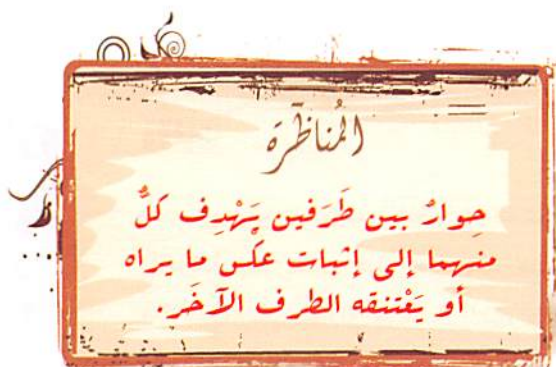 المُناظَرَة
حِوارٌ بين طَرَفين يَهْدِف كلٌّ
منهما إلى إثبات عكْس ما يراه
أو يَعْتنقه الطرف الآخَر.